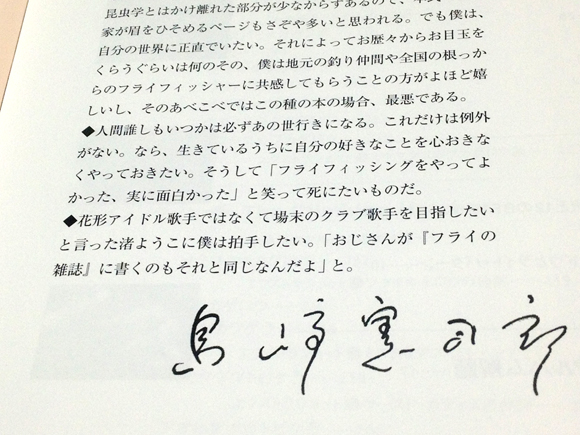 昆虫学とはかけ離れた部分が少なからずあるので、
家が眉をひそめるページもさぞや多いと思われる。でも僕は、
自分の世界に正直でいたい。それによってお歴々からお目玉を
くらうぐらいは何のその、僕は地元の釣り仲間や全国の根っか
らのフライフィッシャーに共感してもらうことの方がよほど嬉
しいし、そのあべこべではこの種の本の場合、最悪である。
◆人間誰しもいつかは必ずあの世行きになる。これだけは例外
がない。なら、生きているうちに自分の好きなことを心おきな
くやっておきたい。そうして「フライフィッシングをやってよ
かった、実に面白かった」と笑って死にたいものだ。
◆花形アイドル歌手ではなくて場末のクラブ歌手を目指したい
と言った渚ようこに僕は拍手したい。「おじさんが『フライの
雑誌』に書くのもそれと同じなんだよ」と。
島崎憲司郎